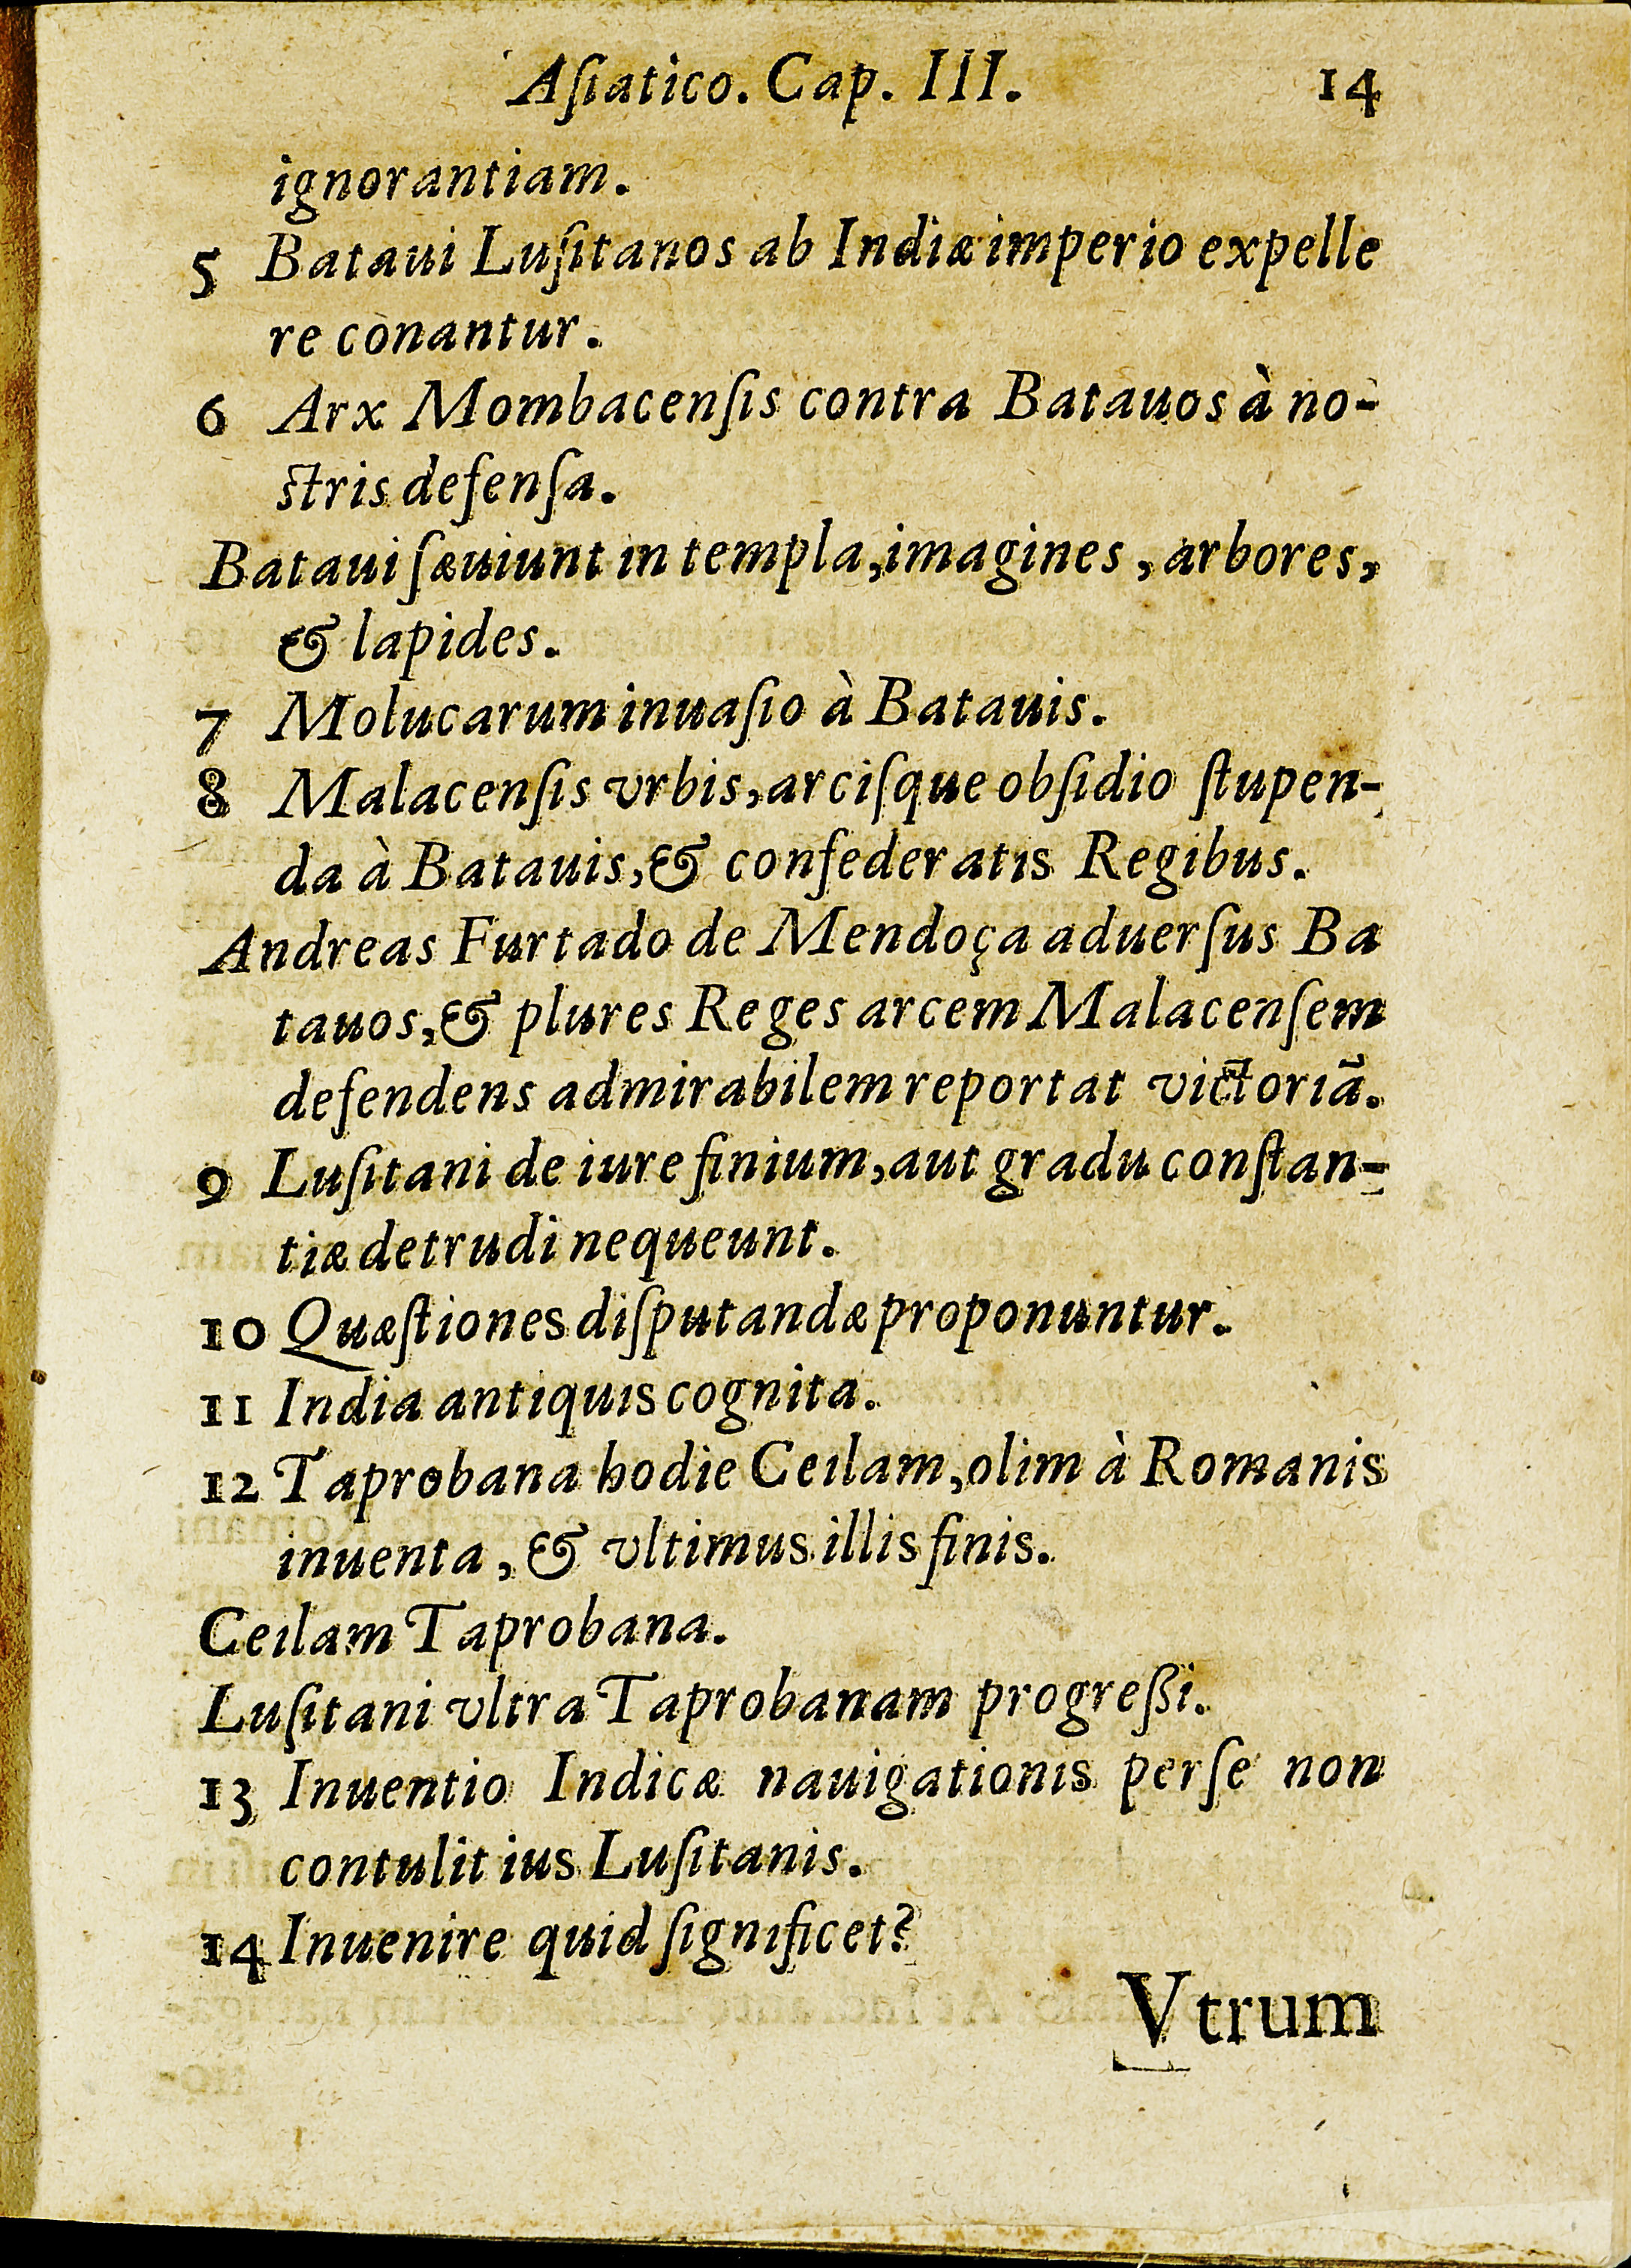 Aſiatico. Cap. III. 14
ignorantiam.
5 Bataui Luſitanos ab Indiæ imperio expelle
re conantur.
6 Arx Mombacenſis contra Batauos à no-
ſtris defenſa.
Bataui ſæuiunt in templa, imagines, arbores,
& lapides.
7 Molucarum inuaſio à Batauis.
8 Malacenſis vrbis, arciſque obſidio ſtupen-
da à Batauis, & confederatis Regibus.
Andreas Furtado de Mendoça aduerſus Ba
tauos, & plures Reges arcem Malacenſem
defendens admirabilem reportat victoriã.
9 Luſitani de iure finium, aut gradu conſtan-
tiæ detrudi nequeunt.
10 Quæſtiones diſputandæ proponuntur.
11 India antiquis cognita.
12 Taprobana hodie Ceilam, olim à Romanis
inuenta, & vltimus illis finis.
Ceilam Taprobana.
Luſitani vltra Taprobanam progreßi.
13 Inuentio Indicæ nauigationis per ſe non
contulit ius Luſitanis.
14 Inuenire quid ſignificet?
Vtrum